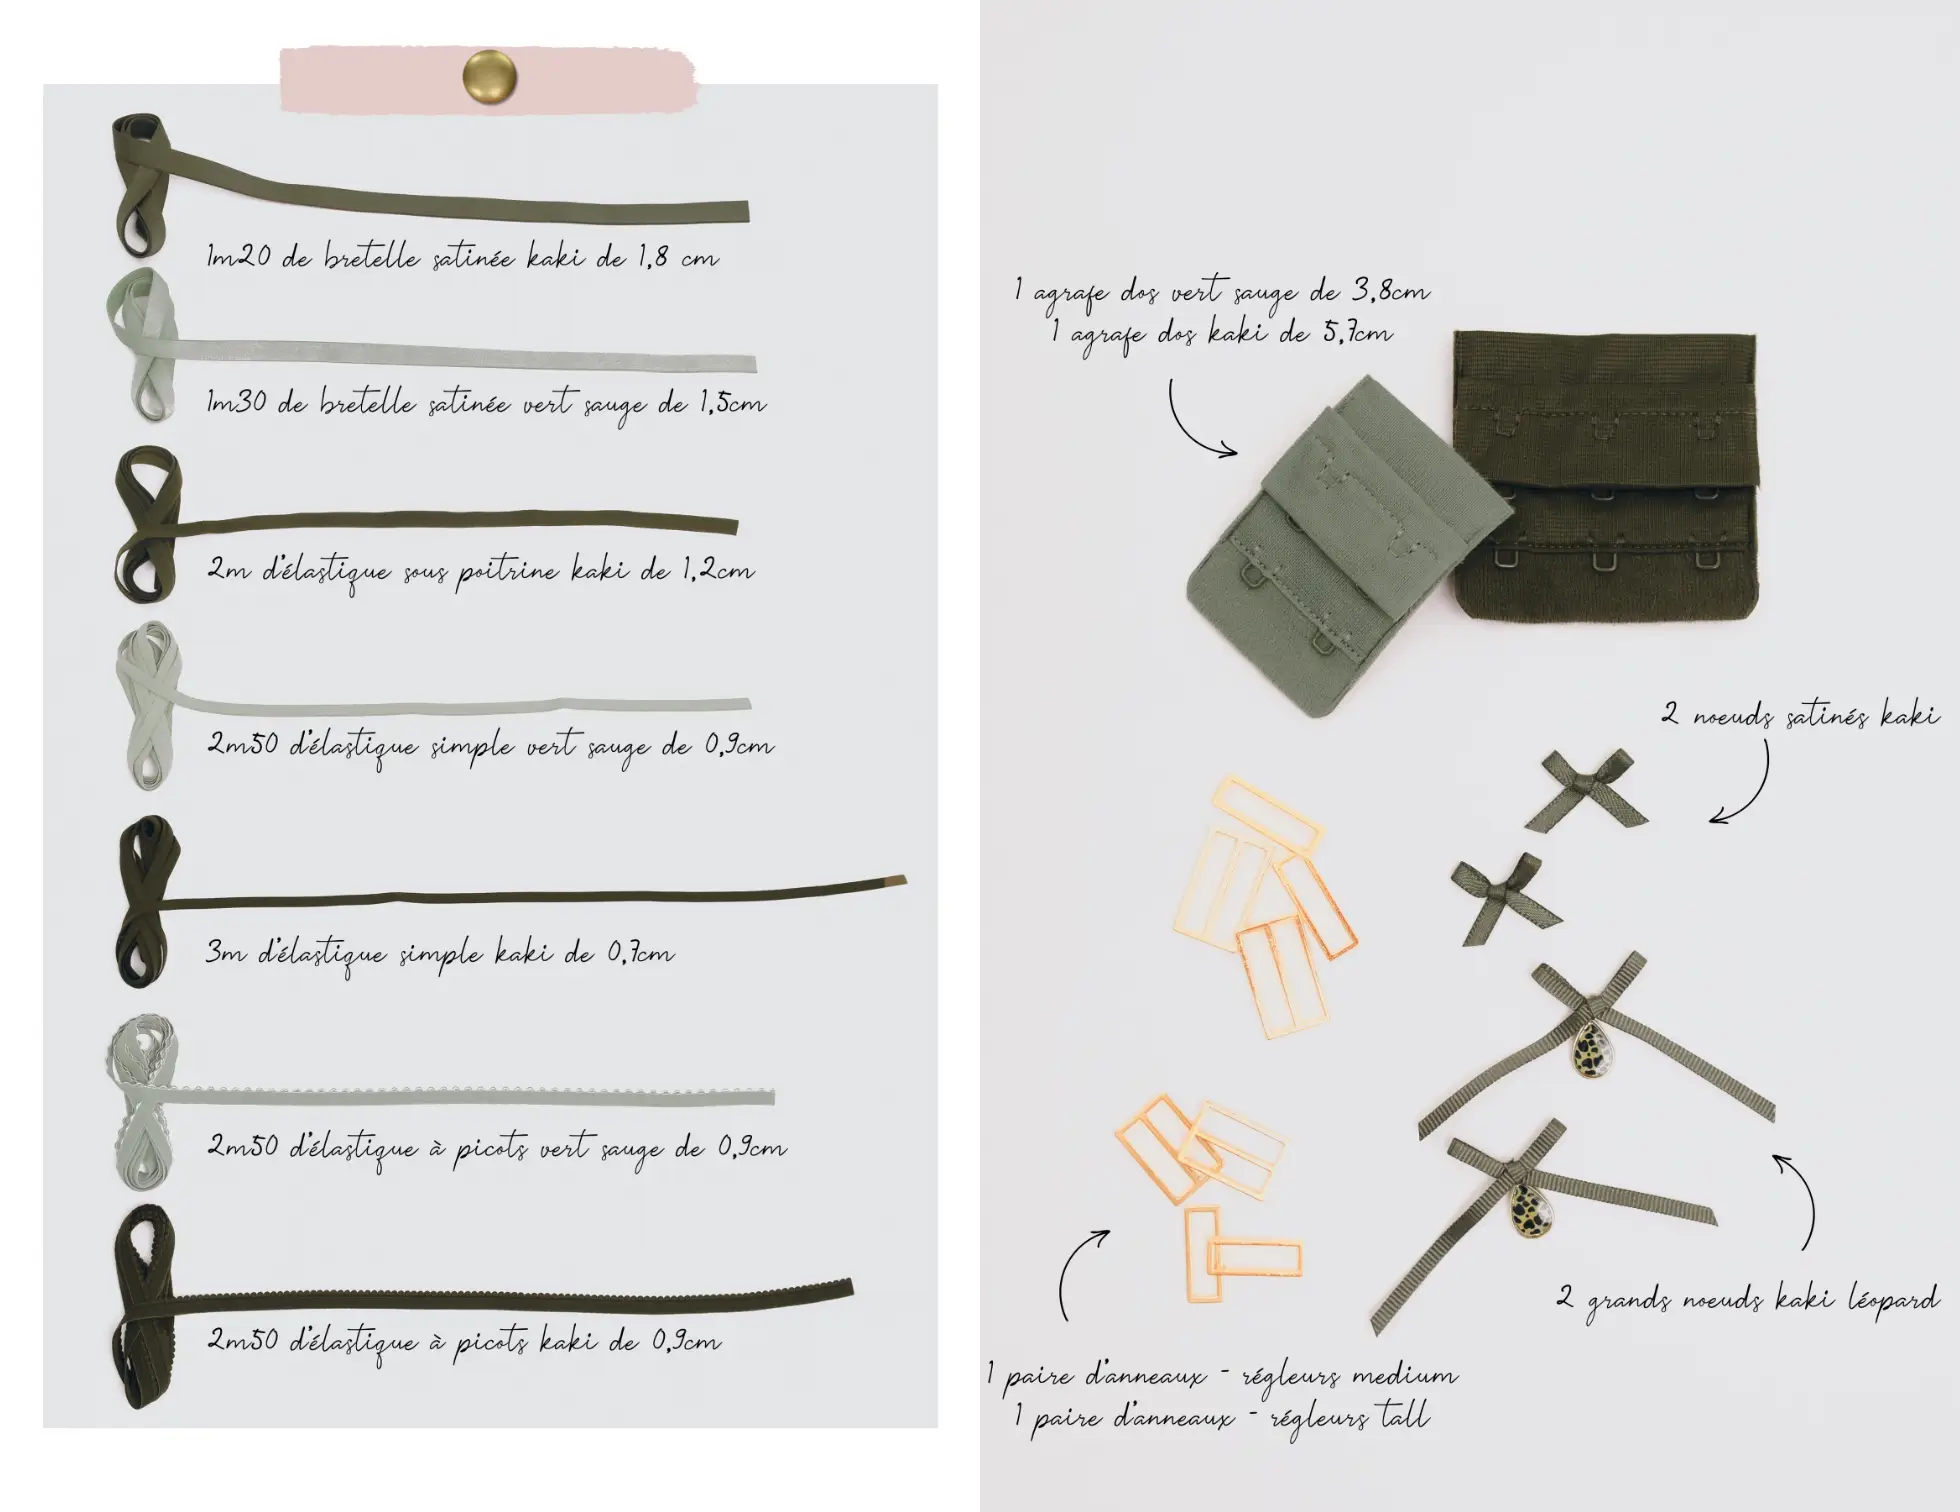 1m20 de bretelle satinée kaki de 1,8 cm
1m30 de bretelle satinée vert sauge de 1,5cm
2m d'élastique sous poitrine kaki de 1,2cm
2m50 d'élastique simple vert sauge de 0,9cm
3m d'élastique simple kaki de 0,7cm
2m50 d'élastique à picots vert sauge de 0,9cm
2m50 d'élastique à picots kaki de 0,9cm
1 agrafe dos vert sauge de 3,8cm
1 agrafe dos kaki de 5,7cm
2 noeuds satinés kaki
2 grands noeuds kaki léopard
1 paire d'anneaux - régleurs medium
1 paire d'anneaux - régleurs tall